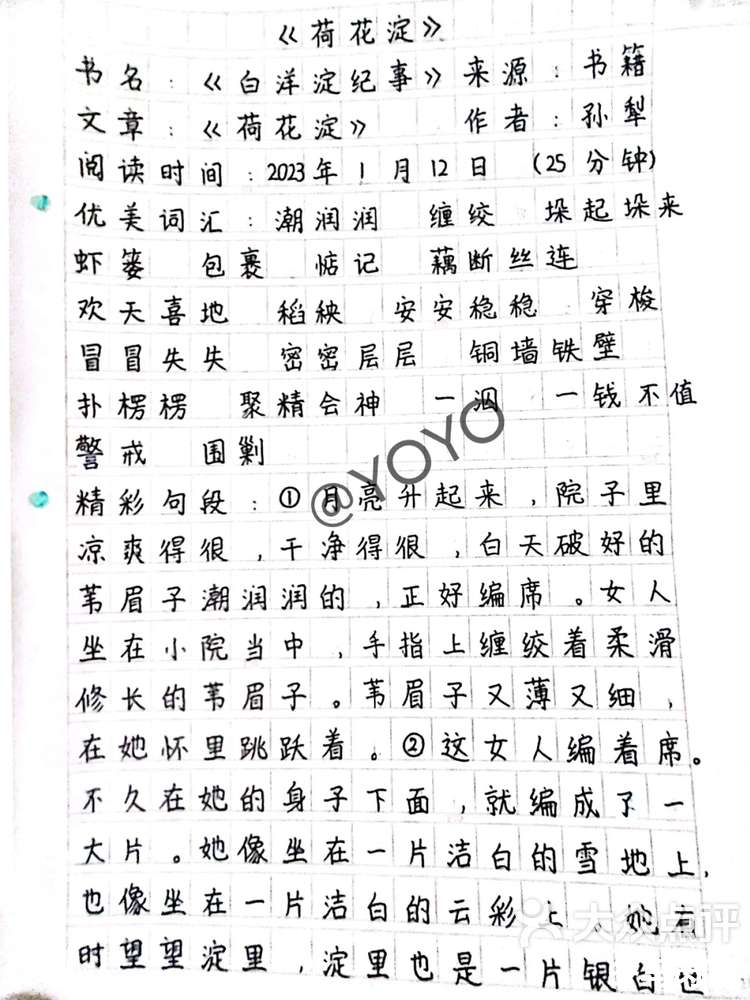 《荷花淀》
书名：《白洋淀纪事》来源：书籍
文章：《荷花淀》 作者：孙犁
阅读时间：2023年1月12日 (25分钟)
优美词汇：潮润润 缠绞 垛起垛来
虾篓 包裹 惦记 藕断丝连
欢天喜地 稻秧 安安稳稳 穿梭
冒冒失失 密密层层 铜墙铁壁
扑楞楞 聚精会神 一泅 一钱不值
警戒 围剿
精彩句段：①月亮升起来，院子里
凉爽得很，干净得很，白天破好的
苇眉子潮润润的，正好编席。女人
坐在小院当中，手指上缠绞着柔滑
修长的苇眉子。苇眉子又薄又细，
在她怀里跳跃着。②这女人编着席。
不久在她的身子下面，就编成了一
大片。她像坐在一片洁白的雪地上，
也像坐在一片洁白的云彩上。她有
时望望淀里，淀里也是一片银白世
@YOYO
大众点评